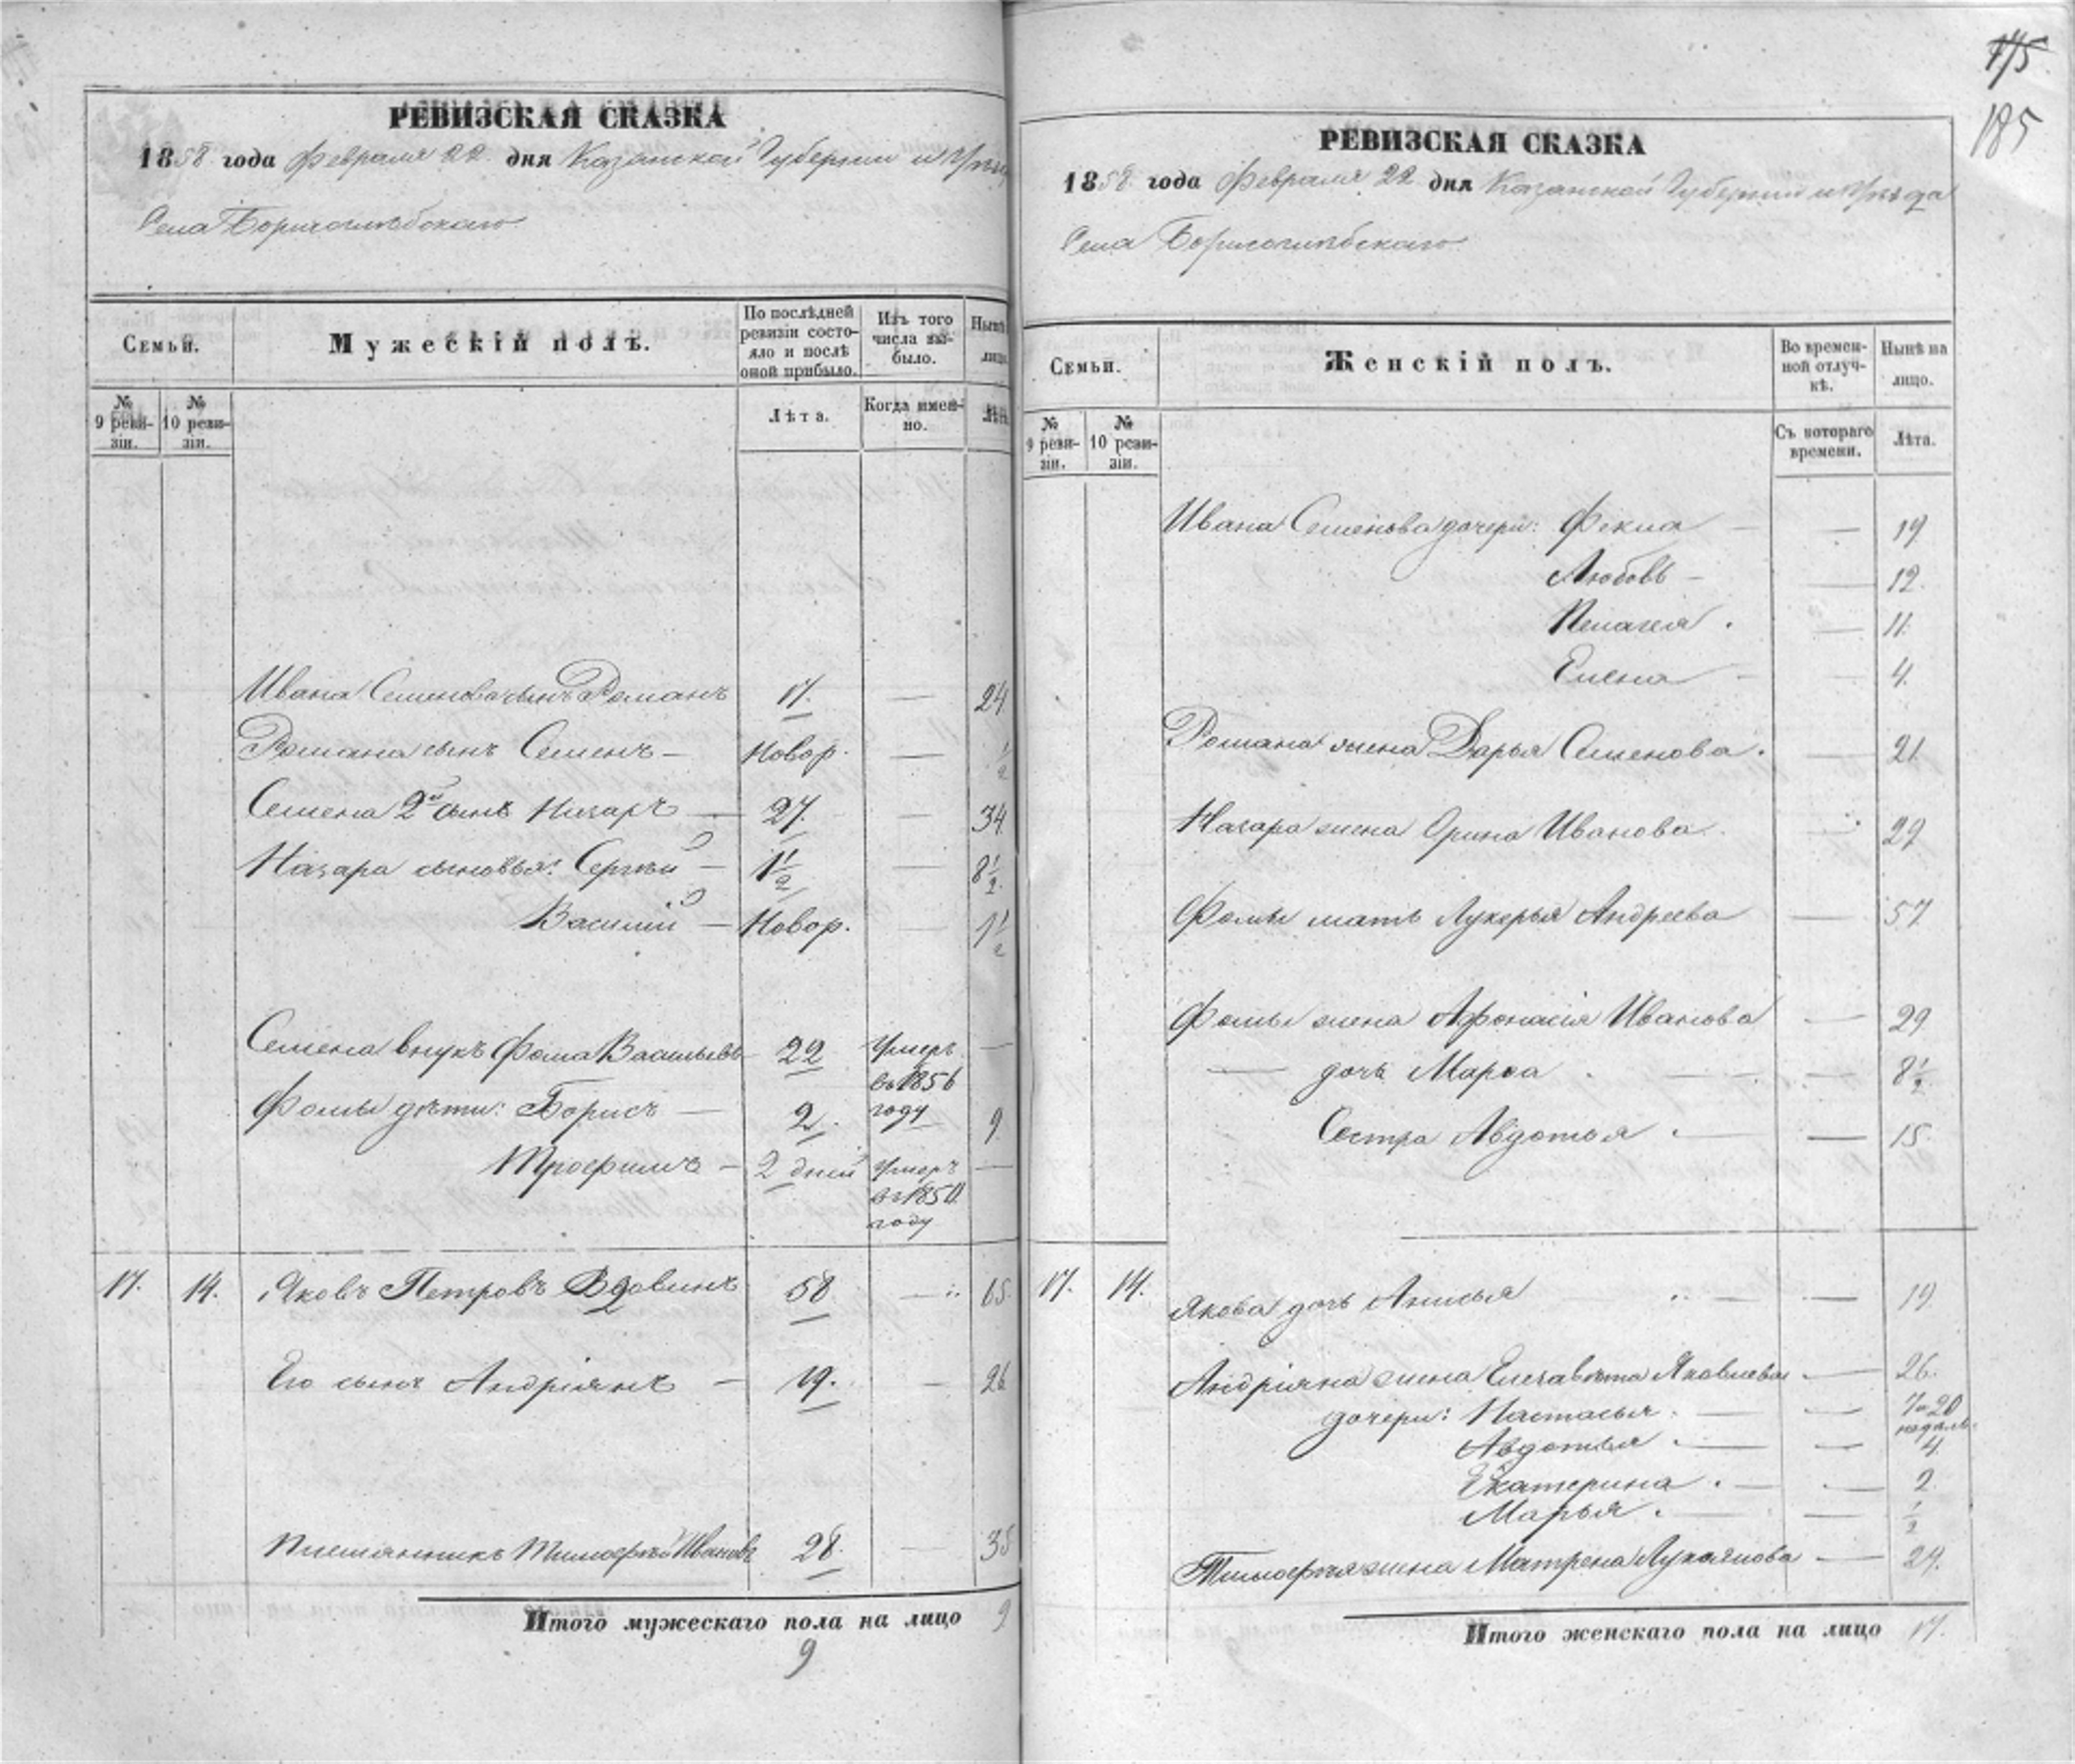 175
185
РЕВИЗСКАЯ СКАЗКА
1858 года Февраля 22 дня Казанской Губерніи и Уѣзда
Села Борисоглѣбскаго
Семьи.
Мужескій полъ.
По послѣдней ревизіи состояло и послѣ оной прибыло.
Изъ того числа выбыло.
Нынѣ лицо.
№ 9 ревизіи.
№ 10 ревизіи.
Лѣта.
Когда именно.
Лѣта.
Ивана Семенова сынъ Романъ 17. — 24
Романа сынъ Семенъ — Новор. — 1/2
Семена 2й сынъ Назаръ — 27. — 34
Назара сыновья: Сергѣй — 1 1/2 — 8 1/2.
Василій — Новор. — 1 1/2
Семена внукъ Фома Васильевъ 22 Умеръ въ 1856 году —
Фомы дѣти: Борисъ — 2. 9
Трофимъ — 2 дней Умеръ въ 1850 году —
17. 14. Яковъ Петровъ Вдовинъ 58 — 65
Его сынъ Андріянъ — 19. — 26
Племянникъ Тимофѣй Ивановъ 28. — 35
Итого мужескаго пола на лицо 9
9
РЕВИЗСКАЯ СКАЗКА
1858 года Февраля 22 дня Казанской Губерніи и Уѣзда
Села Борисоглѣбскаго
Семьи.
Женскій полъ.
Во временной отлучкѣ.
Нынѣ на лицо.
№ 9 ревизіи.
№ 10 ревизіи.
Съ котораго времени.
Лѣта.
Ивана Семенова дочери: Фекла — — 19
Любовь — — 12.
Пелагея . — 11.
Елена — — 4.
Романа жена Дарья Семенова. — 21
Назара жена Орина Иванова. — 27
Фомы мать Лукерья Андреева — 57
Фомы жена Афонасія Иванова — 29
— дочь Марѳа . — — 8 1/2.
Сестра Авдотья . — — 15.
17. 14. Якова дочь Анисья — — 19
Андріяна жена Елизавѣта Яковлева — 26.
дочери: Настасья . — — 7 и 20 недѣль
Авдотья . — — 4
Екатерина . — — 2.
Марья . — — 1/2
Тимофѣя жена Матрена Лукоянова — 29.
Итого женскаго пола на лицо 17.